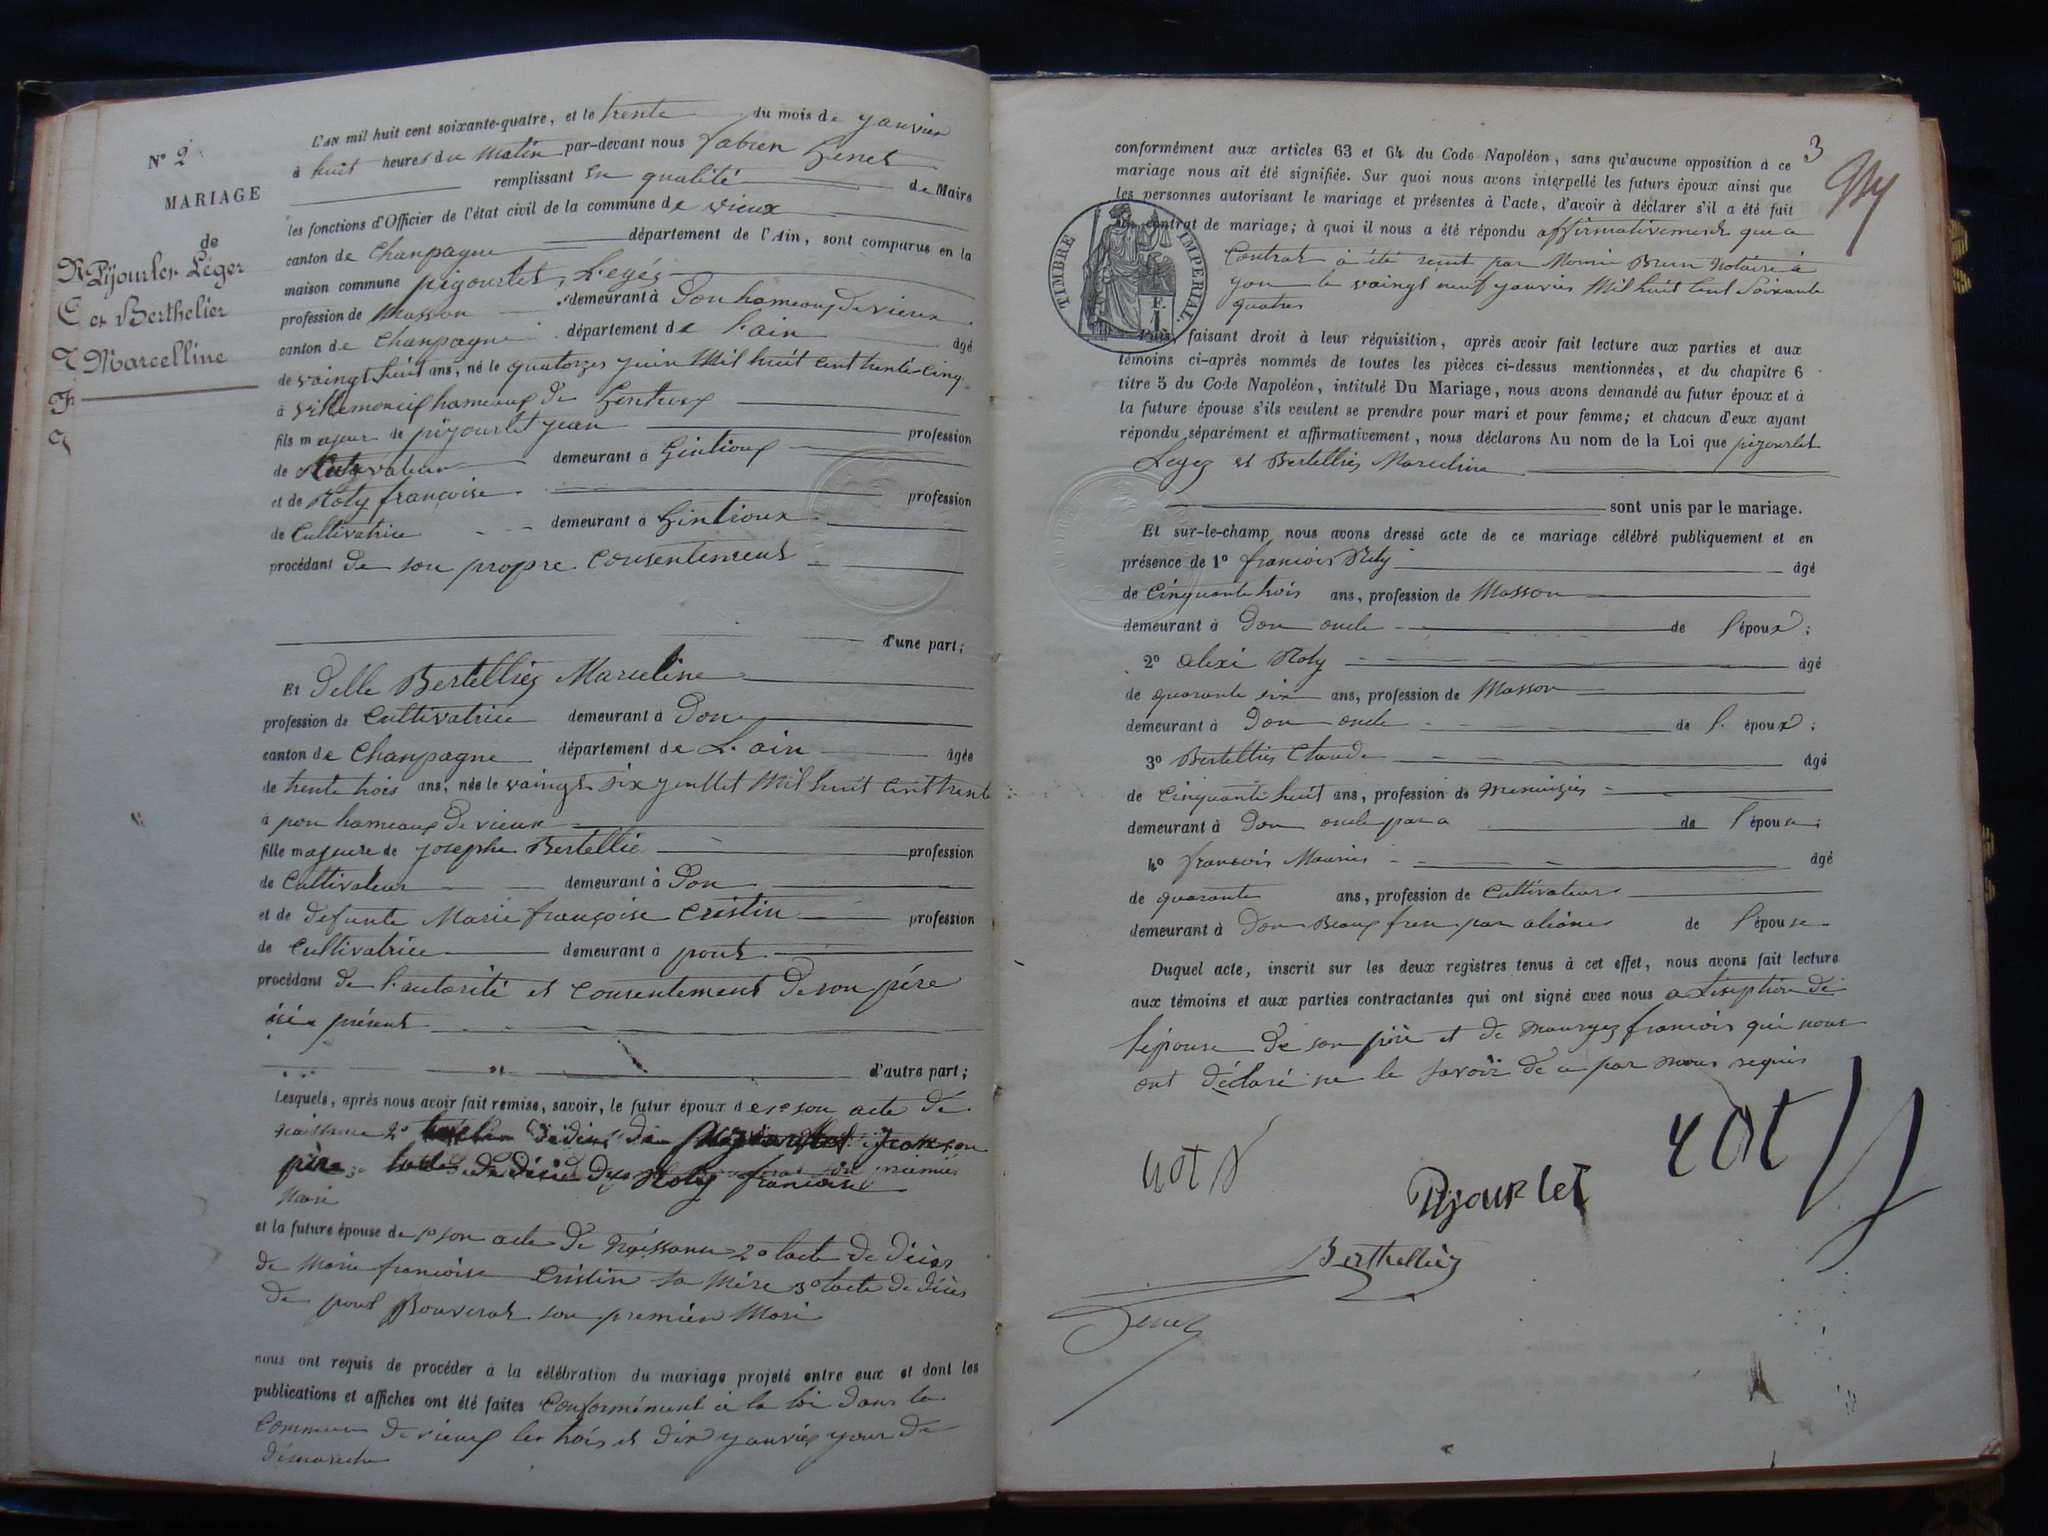 N° 2
MARIAGE
de
Pijourlet Léger
et Berthelier
Marcelline
L'AN mil huit cent soixante-quatre, et le trente du mois de janvier
à huit heures du matin par-devant nous fabien Genet
remplissant En qualité de Maire
les fonctions d'Officier de l'état civil de la commune de vieux
canton de Champagne département de l'Ain, sont comparus en la
maison commune pijourlet Legés
profession de Masson demeurant à Don hameaux De vieux
canton de Champagne département de l'ain âgé
de vaingt huit ans, né le quatorzes juin Mil huit cent trente cinq
à Villemoneix hameaux De Gentioux
fils majeur de pijourlet jean profession
de Cultivateur demeurant à Gintioux
et de Noty françoise profession
de Cultivatrice demeurant à Gintioux
procédant De son propre Consentement
d'une part;
Et Delle Bertelliez Marceline
profession de Cultivatrice demeurant à Don
canton de Champagne département de L'ain âgée
de trente trois ans, née le vaingt six juillet Mil huit Cent trente
à pon hameaux De vieux
fille majeure de josephe Bertellié profession
de Cultivateur demeurant à Don
et de defunte Marie françoise Cristin profession
de Cultivatrice demeurant à pont
procédant De l'autorité et Consentement De son père
ici présent
d'autre part;
Lesquels, après nous avoir fait remise, savoir, le futur époux de 1° son acte de
naissance 2°
mari
et la future épouse de 1° son acte De Naissance 2° l'acte De décès
De Marie françoise Cristin sa Mère 3° l'acte De décès
De Bouverat son premier Mari
nous ont requis de procéder à la célébration du mariage projeté entre eux et dont les
publications et affiches ont été faites Conformément à la loi Dans la
Commune De vieux les trois et dix janvier jour De
Dimanche
3
conformément aux articles 63 et 64 du Code Napoléon, sans qu'aucune opposition à ce
mariage nous ait été signifiée. Sur quoi nous avons interpellé les futurs époux ainsi que
les personnes autorisant le mariage et présentes à l'acte, d'avoir à déclarer s'il a été fait
un contrat de mariage; à quoi il nous a été répondu affirmativement que
Contrat à été reçut par Brun Notaire à
le vaingt neuf janvier Mil huit Cent Soixante
quatres
TIMBRE IMPÉRIAL
Puis, faisant droit à leur réquisition, après avoir fait lecture aux parties et aux
témoins ci-après nommés de toutes les pièces ci-dessus mentionnées, et du chapitre 6
titre 5 du Code Napoléon, intitulé Du Mariage, nous avons demandé au futur époux et à
la future épouse s'ils veulent se prendre pour mari et pour femme; et chacun d'eux ayant
répondu séparément et affirmativement, nous déclarons Au nom de la Loi que pijourlet
Legez et Bertelliés Marceline
sont unis par le mariage.
Et sur-le-champ nous avons dressé acte de ce mariage célébré publiquement et en
présence de 1° francois Noty âgé
de Cinquante trois ans, profession de Masson
demeurant à Don oncle de l'époux;
2° alexi Noty âgé
de quarante six ans, profession de Masson
demeurant à Don oncle de l'époux;
3° Bertelliés Claude âgé
de Cinquante huit ans, profession de menuizies
demeurant à Don oncle de l'épouse;
4° francois Mauries âgé
de quarante ans, profession de Cultivateur
demeurant à Don Beaux frere par de l'épouse
Duquel acte, inscrit sur les deux registres tenus à cet effet, nous avons fait lecture
aux témoins et aux parties contractantes qui ont signé avec nous a L'exeption de
l'épouse De son père et de francois qui nous
ont Déclaré ne le savoir De ce par nous requis
Pijourlet
Berthelliez
Genet